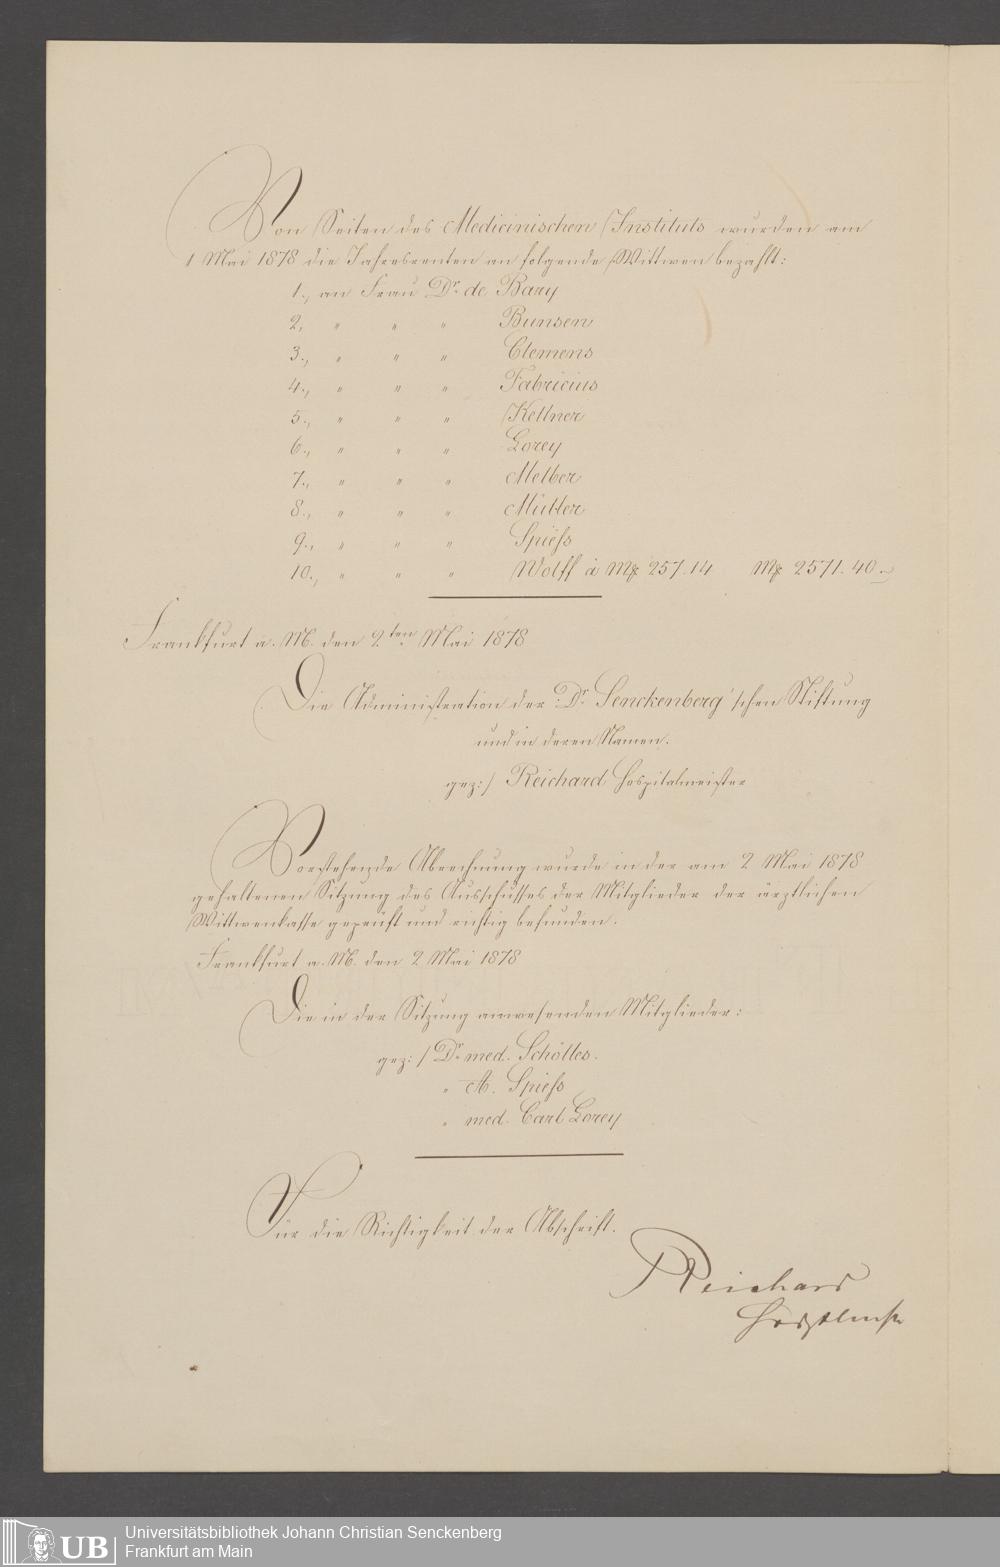 Von Seiten des Medicinischen Instituts wurden am
1 Mai 1878 die Jahresrenten an folgende Wittwen bezahlt:
1., an Frau Dr. de Bary
2., " " " Bunsen
3., " " " Clemens
4., " " " Fabricius
5., " " " Kellner
6., " " " Lorey
7., " " " Melber
8., " " " Müller
9., " " " Spieß
10., " " " Wolff à Mk 257.14 Mk 2571.40.
Frankfurt a. M. den 2ten Mai 1878
Die Administration der Dr. Senckenberg'schen Stiftung
und in deren Namen.
gez:/ Reichard Hospitalmeister
Vorstehende Abrechnung wurde in der am 2 Mai 1878
gehaltenen Sitzung des Ausschusses der Mitglieder der ärztlichen
Wittwenkasse geprüft und richtig befunden.
Frankfurt a. M. den 2 Mai 1878
Die in der Sitzung anwesenden Mitglieder:
gez:/ Dr. med. Schölles.
" A. Spieß
" med. Carl Lorey
Für die Richtigkeit der Abschrift.
Reichard
UB
Universitätsbibliothek Johann Christian Senckenberg
Frankfurt am Main